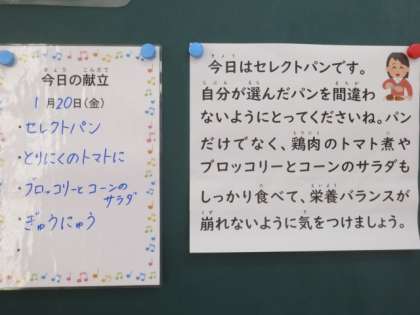 今日の献立
1月20日(金)
・セレクトパン
・とりにくのトマトに
・ブロッコリーとコーンの
サラダ
・ぎゅうにゅう
・
今日はセレクトパンです。
自分が選んだパンを間違わ
ないようにとってくださいね。パン
だけでなく、鶏肉のトマト煮や
ブロッコリーとコーンのサラダも
しっかり食べて、栄養バランスが
崩れないように気をつけましょう。